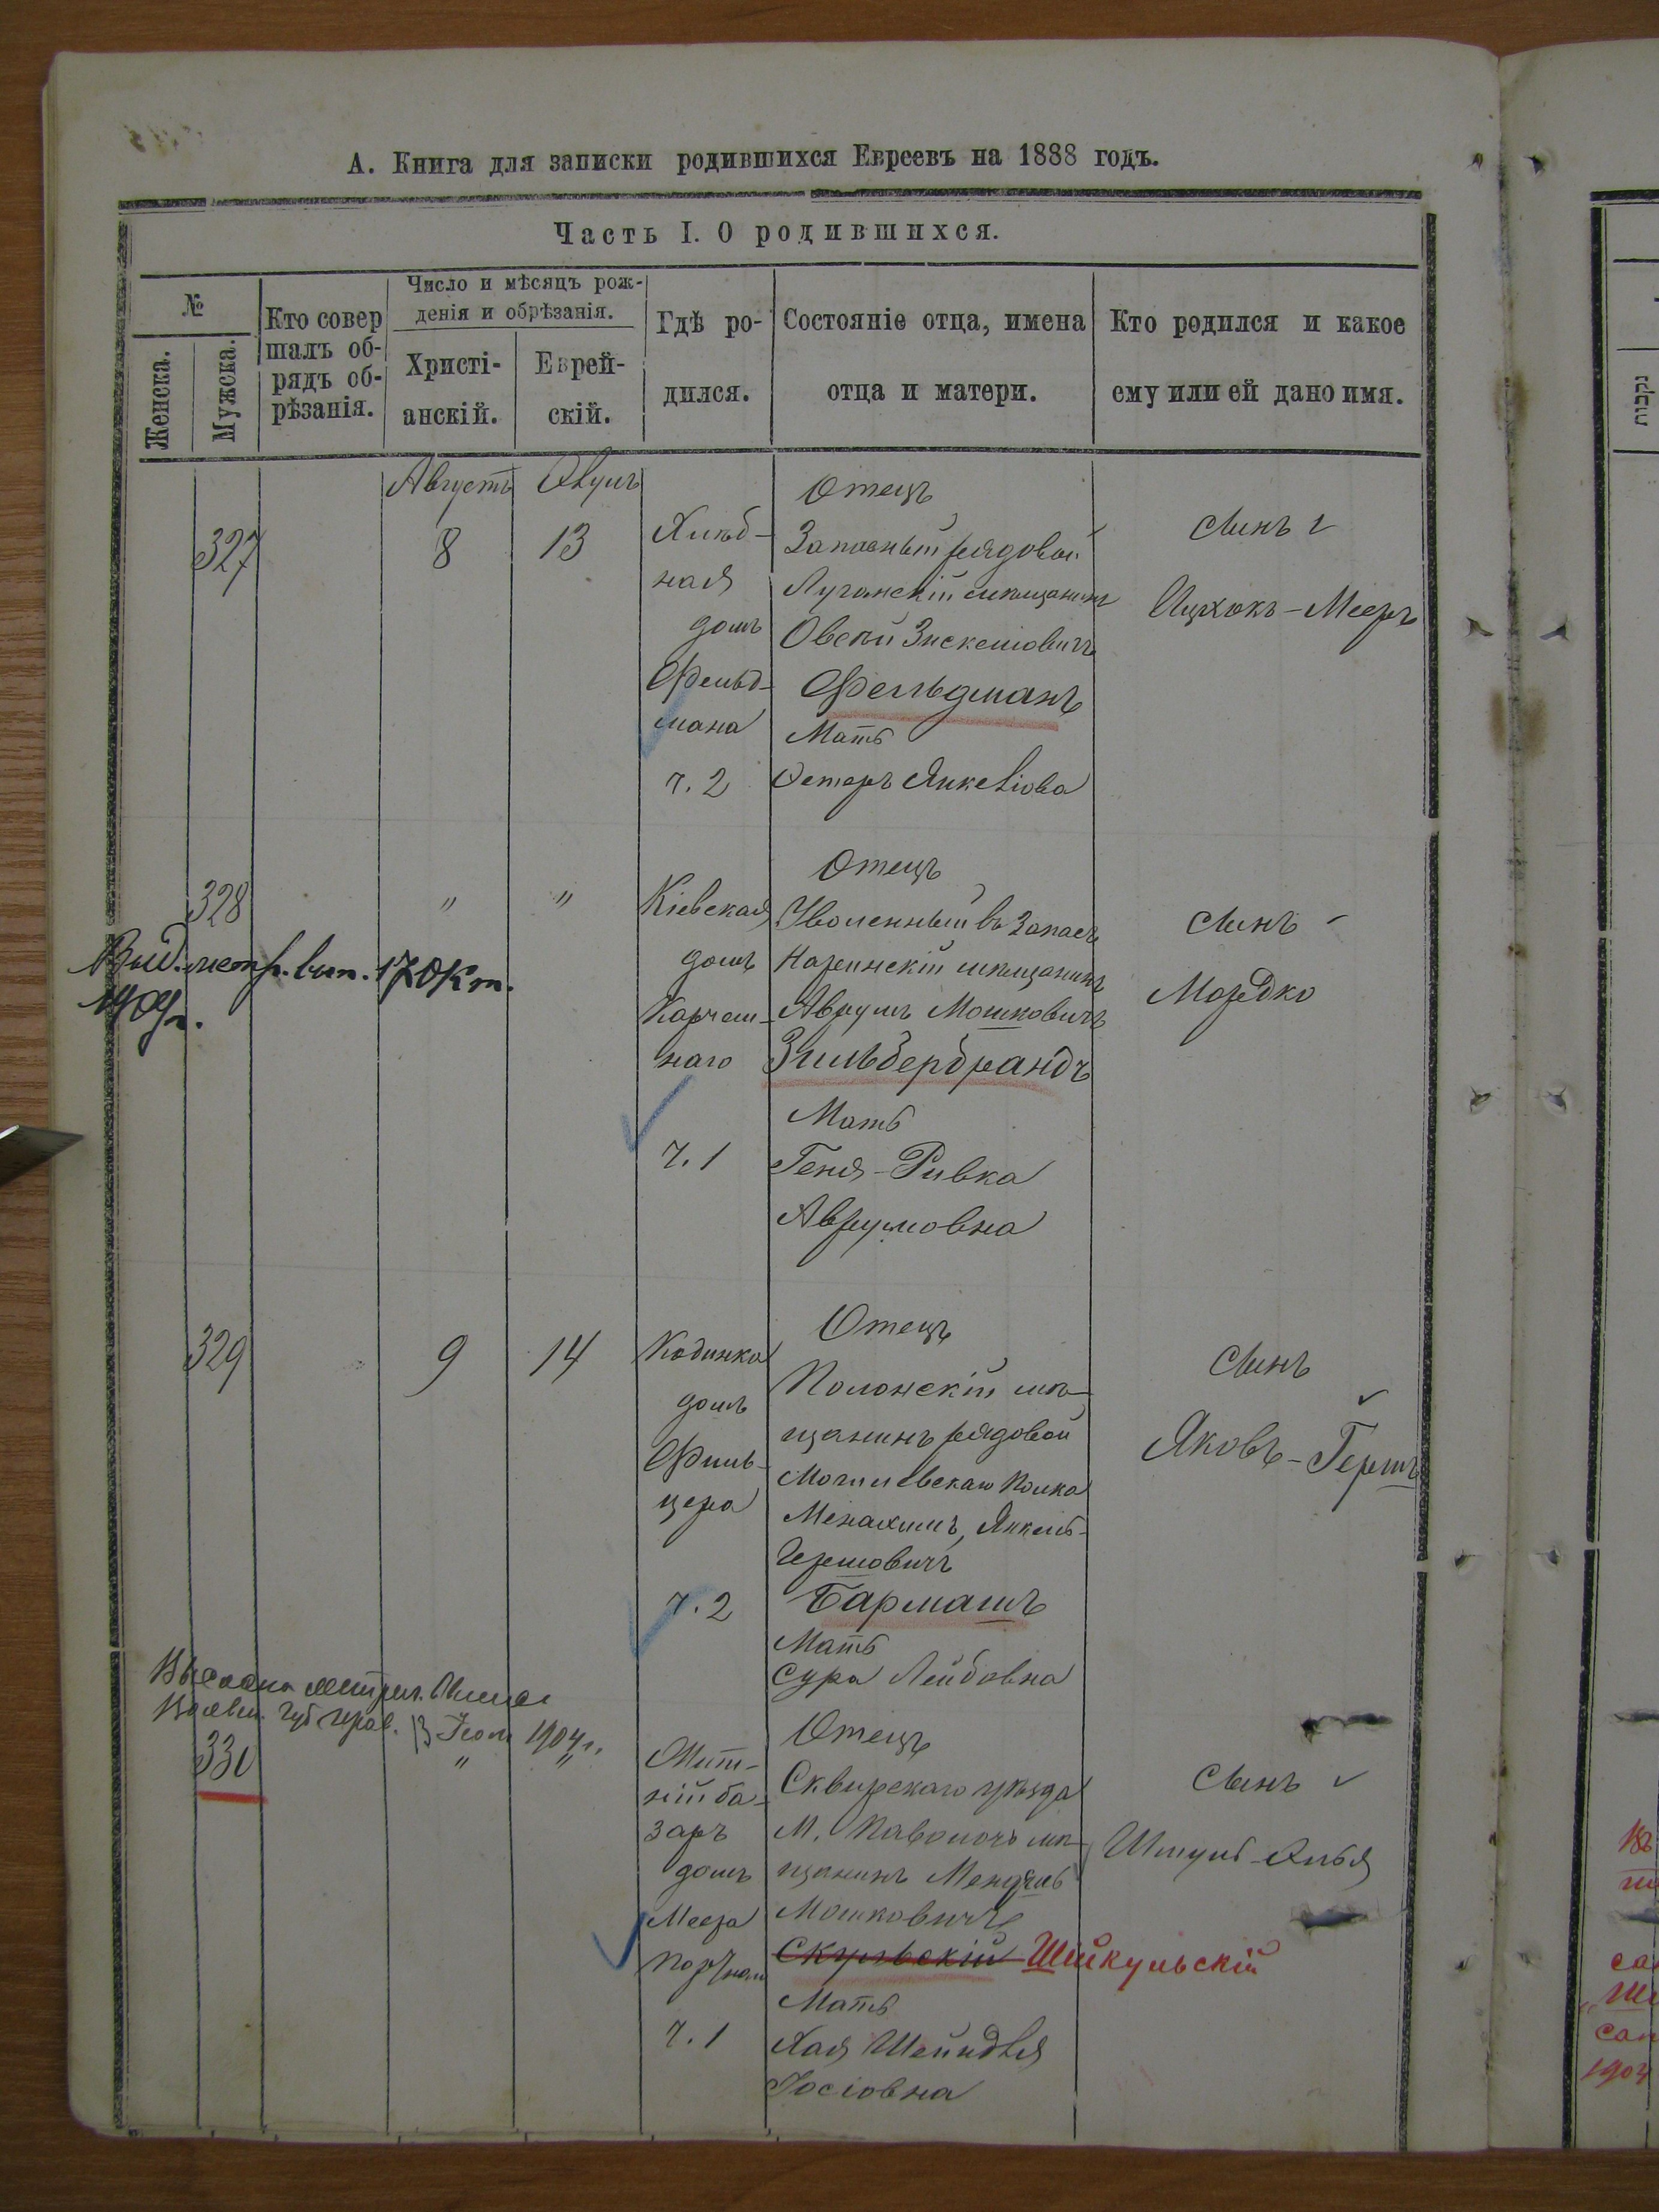 А. Книга для записки родившихся Евреевъ на 1888 годъ.
Часть I. О родившихся.
№
Женска.
Мужска.
Кто совер
шалъ об-
рядъ об-
рѣзанія.
Число и мѣсяцъ рож-
денія и обрѣзанія.
Христі-
анскій.
Еврей-
скій.
Гдѣ ро-
дился.
Состояніе отца, имена
отца и матери.
Кто родился и какое
ему или ей дано имя.
Августъ
327
8
13
Хлѣб-
ная
домъ
Фельд-
мана
ч. 2
Отецъ
Запасный рядовой
Луганскій мѣщанинъ
Овсей
Фельдманъ
Мать
Эстеръ
Сынъ
Ицхокъ-Мееръ
328
"
"
Кіевская
домъ
Карчем-
наго
ч. 1
Отецъ
Уволенный въ Запасъ
мѣщанинъ
Аврумъ Мошковичъ
Зильбербрандъ
Мать
Геня-Ривка
Аврумовна
Сынъ
Мордко
Выд. метр. вып.
1909г.
329
9
14
Кодинка
домъ
Фиш-
цера
ч. 2
Отецъ
Полонскій мѣ-
щанинъ рядовой
полка
Менахимъ, Янкель-
Гершовичъ
Бармашъ
Мать
Сура Лейбовна
Сынъ
Яковъ-Гершъ
Выслана метрич.
1904г.
330
"
"
Жит-
ній ба-
заръ
домъ
Меера
ч. 1
Отецъ
Сквирскаго уѣзда
М. Паволочь мѣ-
щанинъ Мендель
Мошковичъ
Скульскій Шійкульскій
Мать
Хая Шейндля
Іосіовна
Сынъ
Шмуль-Элья
נקבות
1904